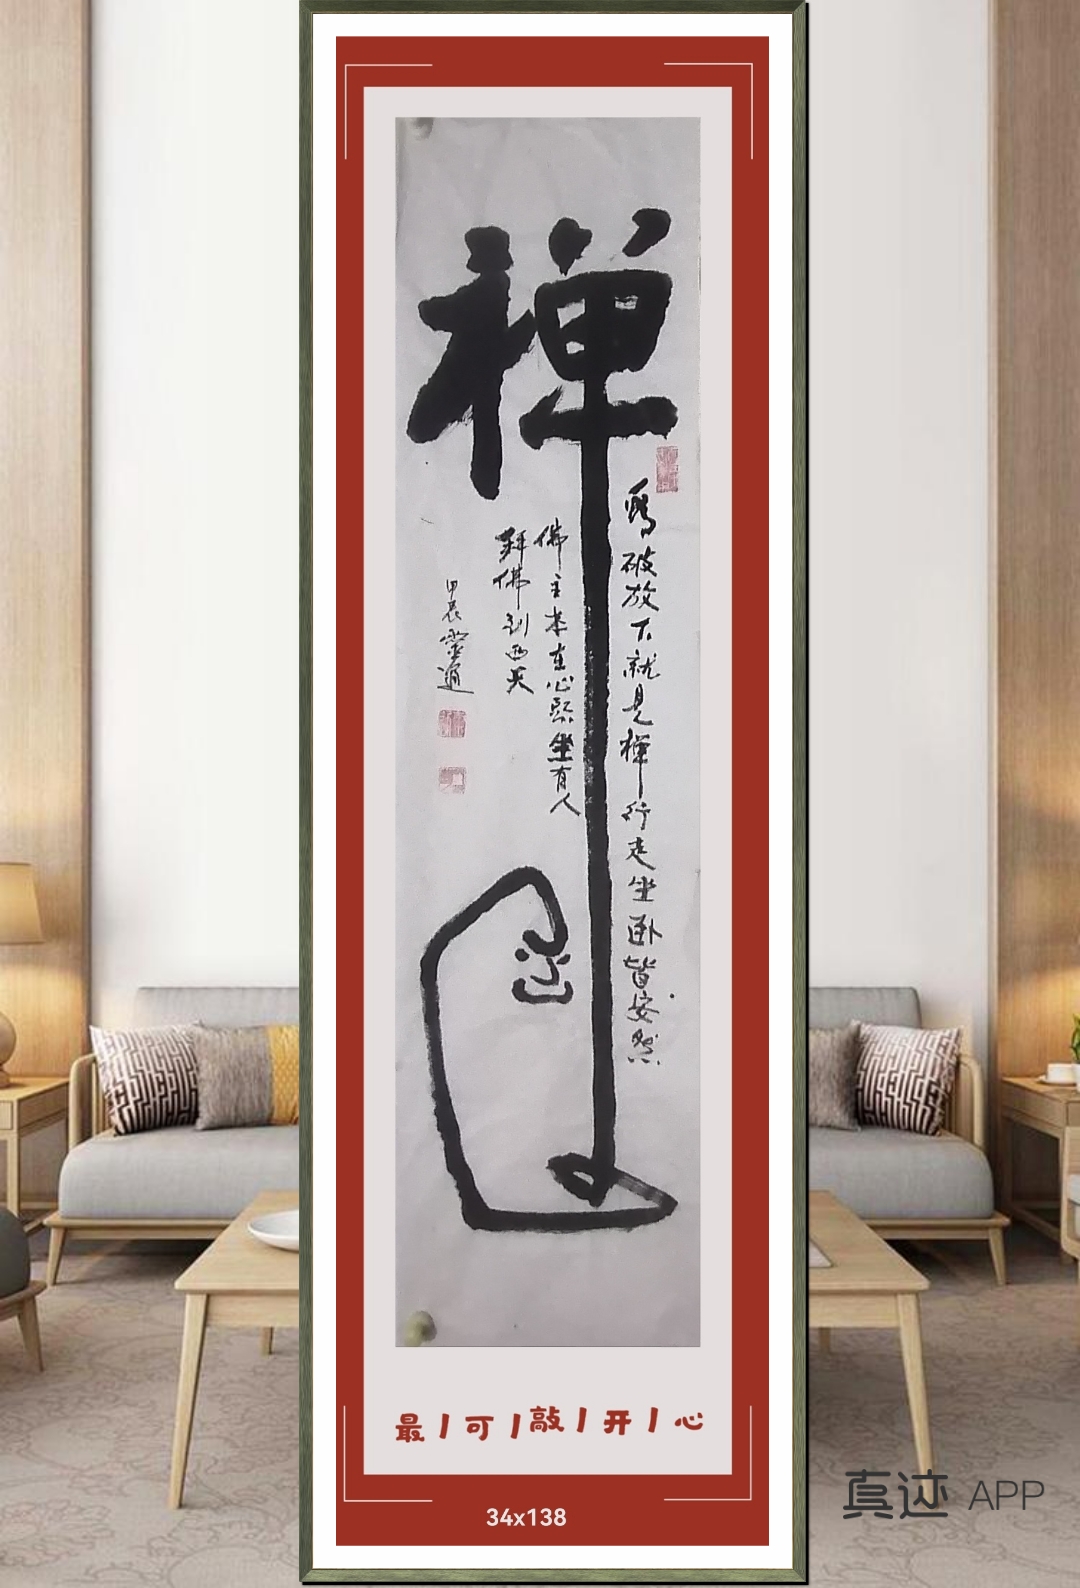 禅
破放下就見禅行走坐卧皆安然
佛主本在心 坐有人
拜佛到西天
甲辰 靈通
最丨可丨敲丨开丨心
34x138
真迹 APP